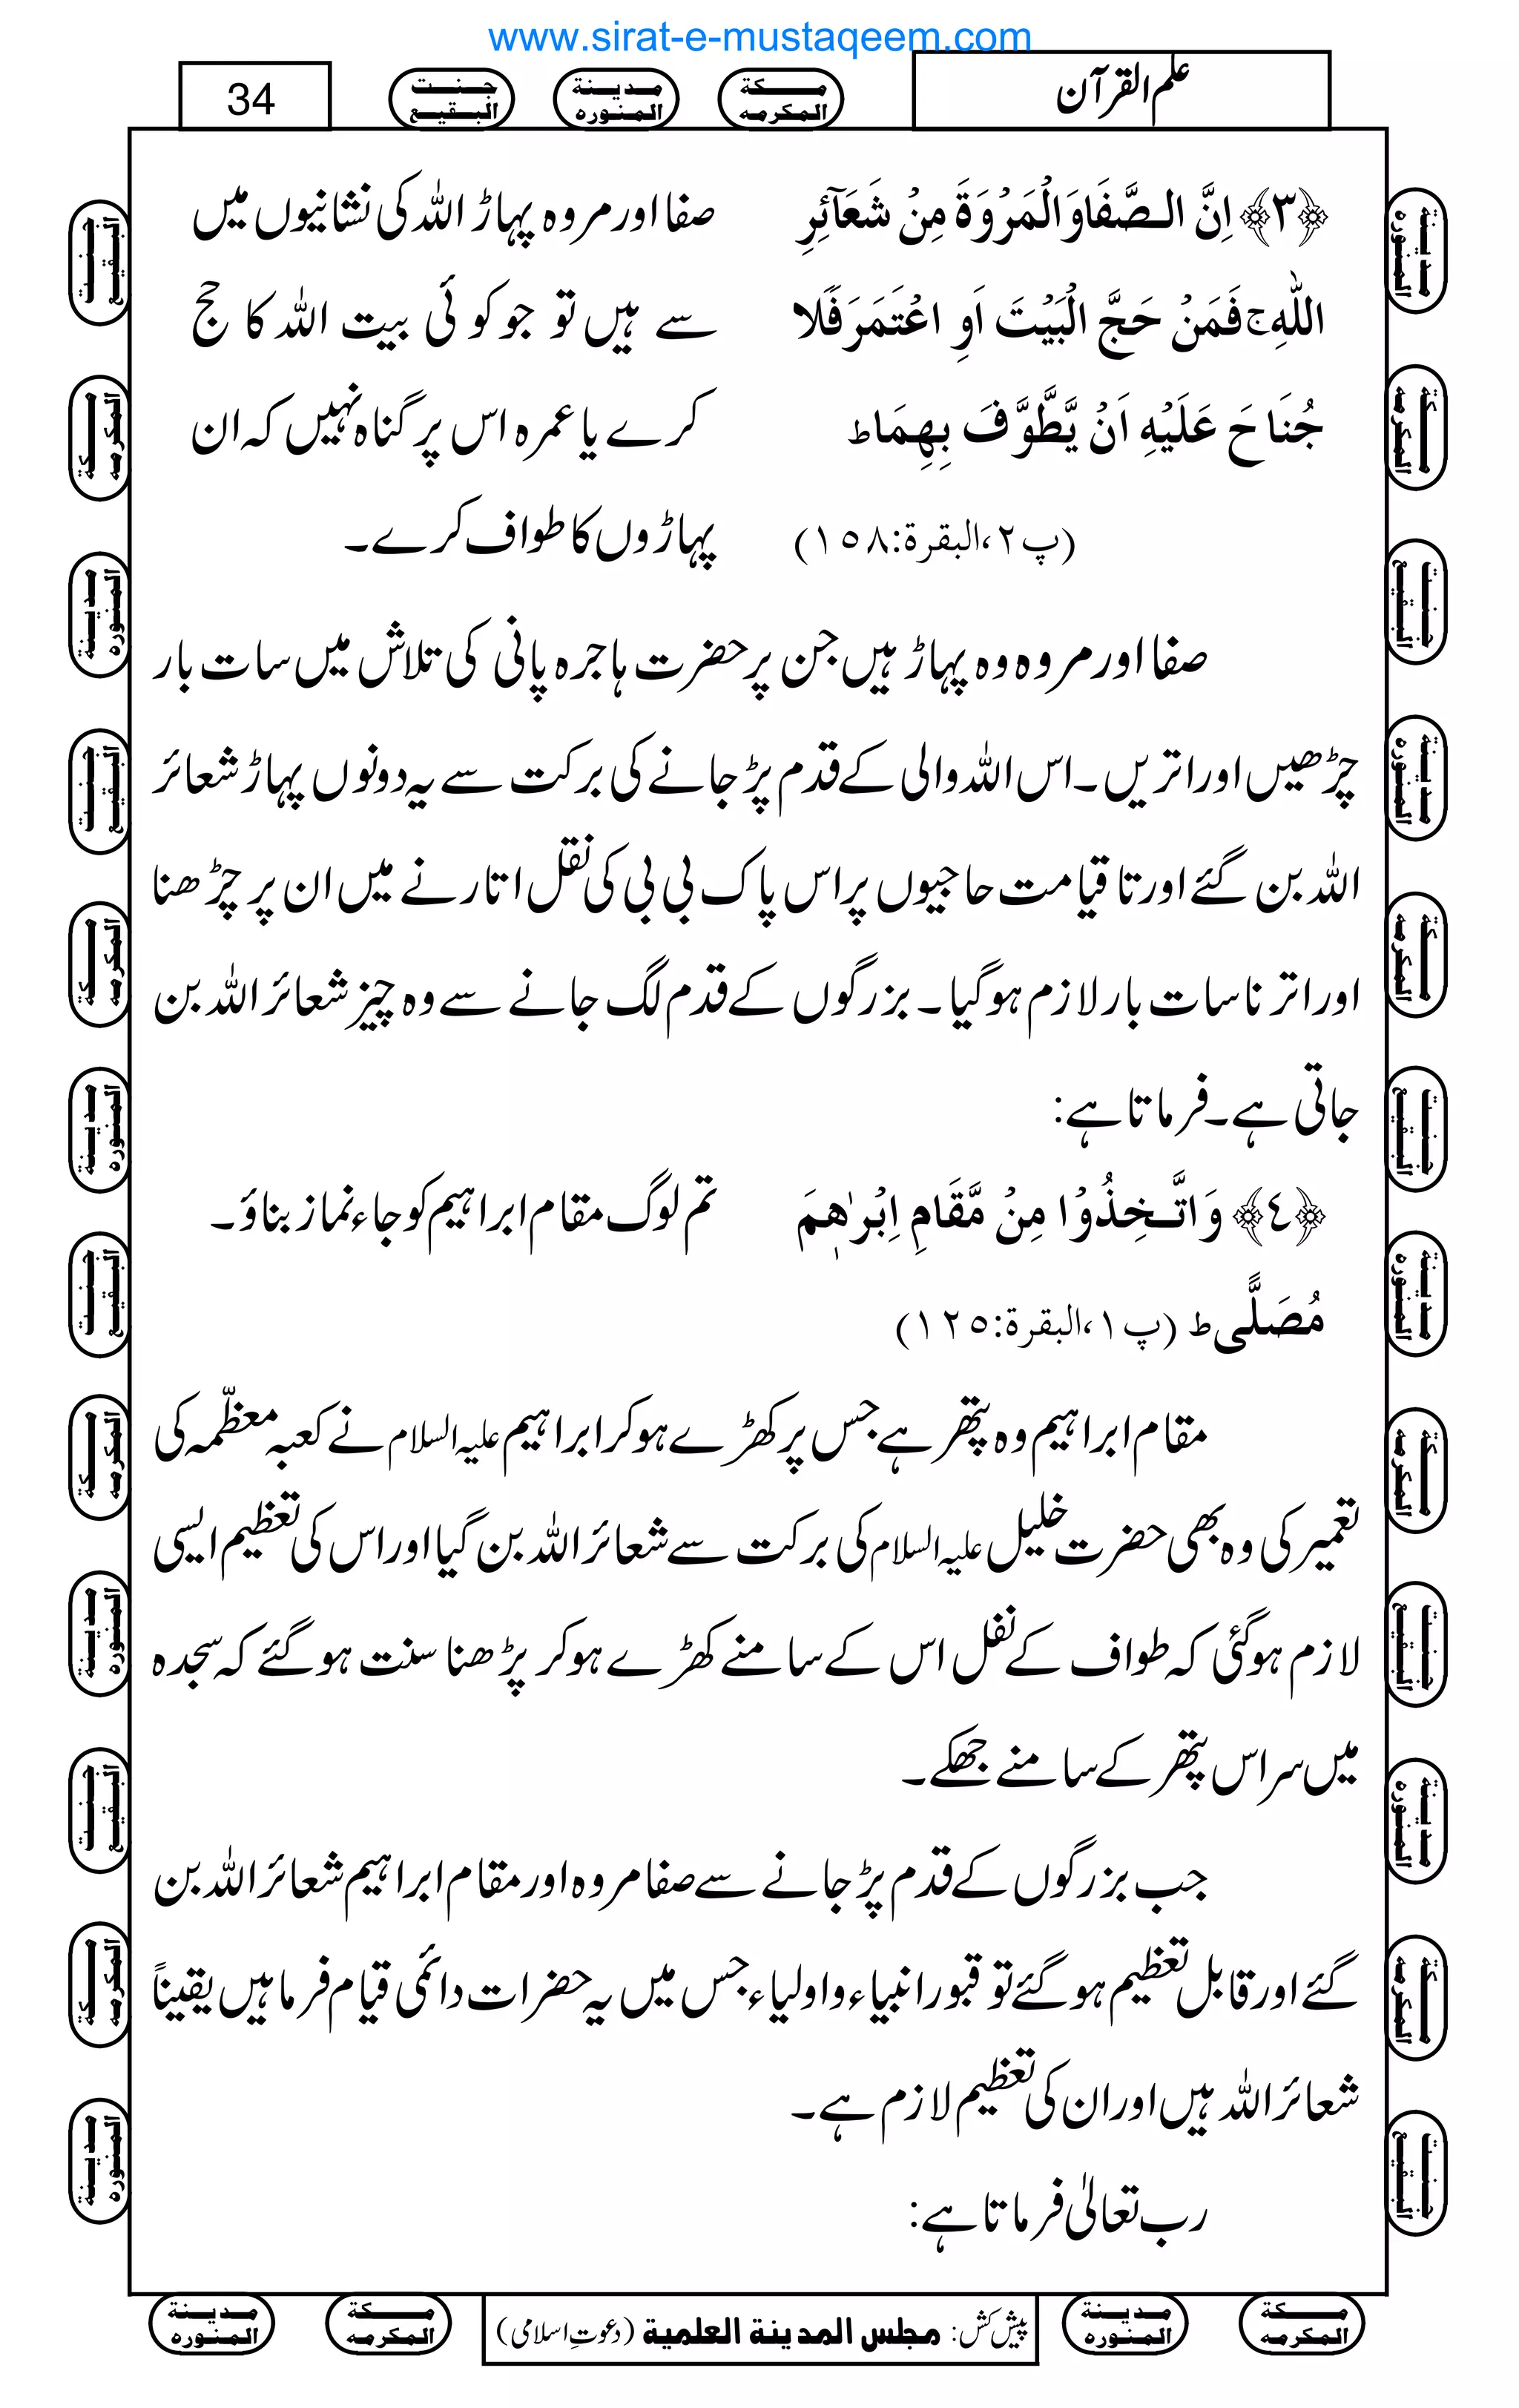 www.sirat-e-mustaqeem.com
علم القرآن
مـكة المكرمه
مدينة المنوره
جنت البقيع
34
﴿٣﴾ اِنَّ الصَّفَا وَالْمَرْوَةَ مِنْ شَعَآئِرِ
اللّٰهِ ج فَمَنْ حَجَّ الْبَيْتَ اَوِ اعْتَمَرَ فَلَا
جُنَاحَ عَلَيْهِ اَنْ يَّطَّوَّفَ بِهِمَا ط
(پ٢،البقرة:١٥٨)
صفا اور مروہ پہاڑ اللہ کی نشانیوں میں
سے ہیں تو جو کوئی بیت اللہ کا حج
کرے یا عمرہ اس پر گناہ نہیں کہ ان
پہاڑوں کا طواف کرے۔
صفا اور مروہ وہ پہاڑ ہیں جن پر حضرت ہاجرہ پانی کی تلاش میں سات بار
چڑھیں اور اتریں۔ اس اللہ والی کے قدم پڑ جانے کی برکت سے یہ دونوں پہاڑ شعائر
اللہ بن گئے اور تا قیامت حاجیوں پر اس پاک بی بی کی نقل اتارنے میں ان پر چڑھنا
اور اترنا سات بار لازم ہو گیا۔ بزرگوں کے قدم لگ جانے سے وہ چیز شعائر اللہ بن
جاتی ہے۔ فرماتا ہے:
﴿٤﴾ وَاتَّخِذُوْا مِنْ مَّقَامِ اِبْرٰهٖمَ
مُصَلًّى ط (پ١،البقرة:١٢٥)
تم لوگ مقام ابراہیم کو جاء نماز بناؤ۔
مقام ابراہیم وہ پتھر ہے جس پر کھڑے ہو کر ابراہیم علیہ السلام نے کعبہ معظّمہ کی
تعمیر کی وہ بھی حضرت خلیل علیہ السلام کی برکت سے شعائر اللہ بن گیا اور اس کی تعظیم ایسی
لازم ہو گئی کہ طواف کے نفل اس کے سامنے کھڑے ہو کر پڑھنا سنت ہو گئے کہ سجدہ
میں سر اس پتھر کے سامنے جھکے۔
جب بزرگوں کے قدم پڑ جانے سے صفا مروہ اور مقام ابراہیم شعائر اللہ بن
گئے اور قابل تعظیم ہو گئے تو قبور انبیاء و اولیاء جس میں یہ حضرات دائمی قیام فرما ہیں یقیناً
شعائر اللہ ہیں اور ان کی تعظیم لازم ہے۔
رب تعالیٰ فرماتا ہے:
مـكة المكرمه
مدينة المنوره
پیش کش: مجلس المدينة العلمية (دعوتِ اسلامی)
مـكة المكرمه
مدينة المنوره